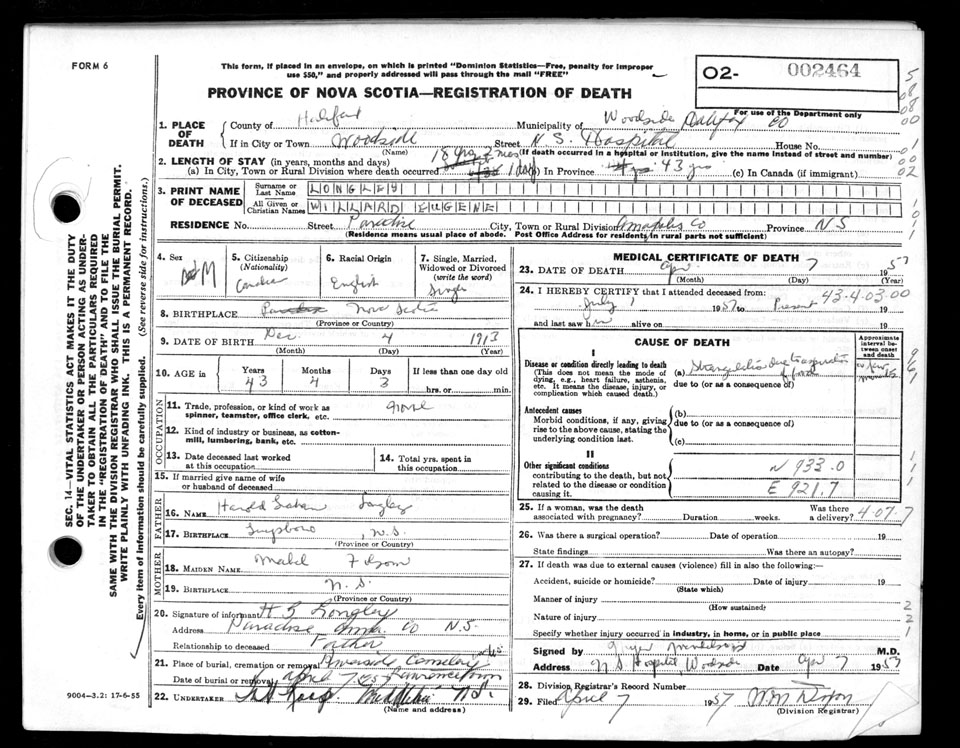 FORM 6
This form, if placed in an envelope, on which is printed "Dominion Statistics—Free, penalty for improper
use $50," and properly addressed will pass through the mail "FREE"
PROVINCE OF NOVA SCOTIA—REGISTRATION OF DEATH
O2- 002464
For use of the Department only
1. PLACE OF DEATH
County of Halifax Municipality of Woodside Halifax Co
If in City or Town Woodside Street N.S. Hospital House No.
(Name) (If death occurred in a hospital or institution, give the name instead of street and number)
2. LENGTH OF STAY (in years, months and days)
(a) In City, Town or Rural Division where death occurred 18 yrs 2 mos 1 day (b) In Province 43 yrs (c) In Canada (if immigrant)
3. PRINT NAME OF DECEASED
Surname or Last Name LONGLEY
All Given or Christian Names WILLARD EUGENE
RESIDENCE No. Street Paradise City, Town or Rural Division Annapolis Co Province NS
(Residence means usual place of abode. Post Office Address for residents in rural parts not sufficient)
4. Sex M
5. Citizenship (Nationality)
6. Racial Origin English
7. Single, Married, Widowed or Divorced (write the word) Single
8. BIRTHPLACE Nova Scotia
(Province or Country)
9. DATE OF BIRTH Dec. 4 1913
(Month) (Day) (Year)
10. AGE in Years 43 Months 4 Days 3 If less than one day old hrs. or min.
OCCUPATION
11. Trade, profession, or kind of work as spinner, teamster, office clerk, etc. None
12. Kind of industry or business, as cotton-mill, lumbering, bank, etc.
13. Date deceased last worked at this occupation
14. Total yrs. spent in this occupation
15. If married give name of wife or husband of deceased
FATHER
16. NAME Harold Longley
17. BIRTHPLACE , N.S.
(Province or Country)
MOTHER
18. MAIDEN NAME Mabel
19. BIRTHPLACE N.S.
(Province or Country)
20. Signature of informant H S Longley
Address Paradise Anna. Co N.S.
Relationship to deceased Father
21. Place of burial, cremation or removal Riverside Cemetery
Date of burial or removal April 7 Lawrencetown
22. UNDERTAKER Middleton N.S.
(Name and address)
MEDICAL CERTIFICATE OF DEATH
23. DATE OF DEATH Apr 7 1957
(Month) (Day) (Year)
24. I HEREBY CERTIFY that I attended deceased from:
July 1 to Present 43-4-03-00
and last saw him alive on 19
CAUSE OF DEATH
Approximate interval between onset and death
I
Disease or condition directly leading to death (This does not mean the mode of dying, e.g., heart failure, asthenia, etc. It means the disease, injury, or complication which caused death.)
(a) Strangulation due to aspiration of
due to (or as a consequence of)
a few minutes
Antecedent causes
Morbid conditions, if any, giving rise to the above cause, stating the underlying condition last.
(b)
due to (or as a consequence of)
(c)
II
Other significant conditions contributing to the death, but not related to the disease or condition causing it.
N 933.0
E 921.7
25. If a woman, was the death associated with pregnancy? Duration weeks. Was there a delivery? 4-07-7
26. Was there a surgical operation? Date of operation 19
State findings Was there an autopsy?
27. If death was due to external causes (violence) fill in also the following:—
Accident, suicide or homicide? Date of injury 19
(State which)
Manner of injury
(How sustained)
Nature of injury
Specify whether injury occurred in industry, in home, or in public place
Signed by M.D.
Address N S Hospital, Woodside Date Apr 7 1957
28. Division Registrar's Record Number
29. Filed April 7 1957
(Division Registrar)
SEC. 14—VITAL STATISTICS ACT MAKES IT THE DUTY
OF THE UNDERTAKER OR PERSON ACTING AS UNDER-
TAKER TO OBTAIN ALL THE PARTICULARS REQUIRED
IN THE "REGISTRATION OF DEATH" AND TO FILE THE
SAME WITH THE DIVISION REGISTRAR WHO SHALL ISSUE THE BURIAL PERMIT.
WRITE PLAINLY WITH UNFADING INK. THIS IS A PERMANENT RECORD.
Every item of information should be carefully supplied. (See reverse side for instructions.)
9004—3.2: 17-6-55